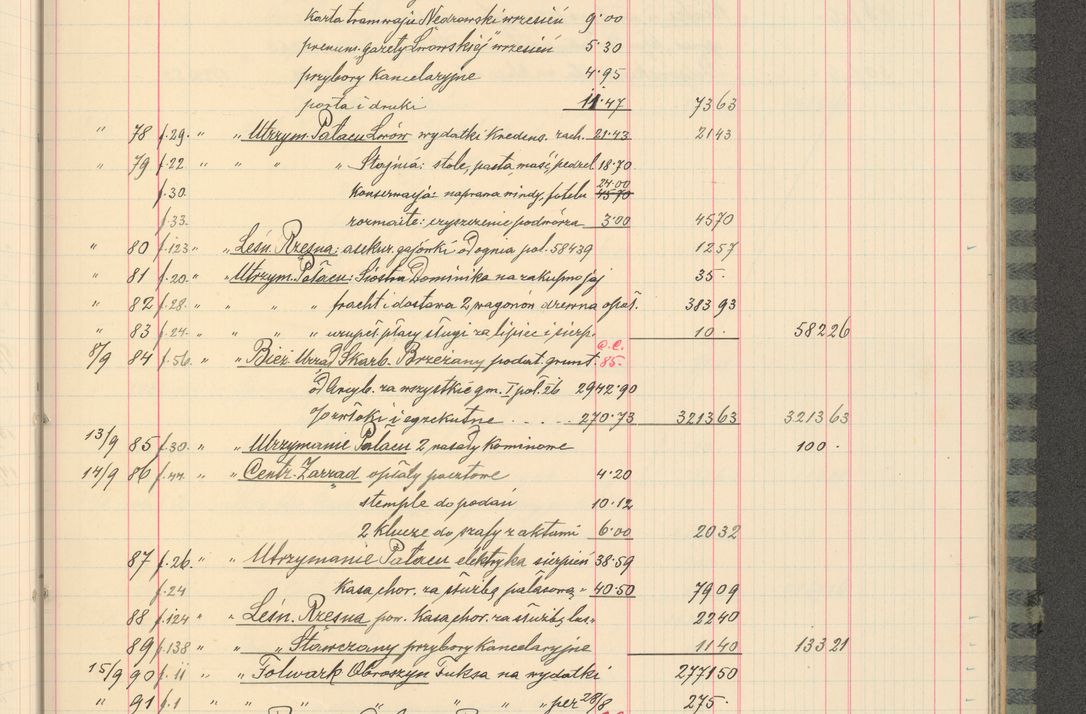 Karta tramwaju Nedrowski wrzesień 9·00
prenum. „gazety Lwowskiej" wrzesień 5·30
przybory Kancelaryjne 4·95
porta i druki 11·47 73 63
" 78 f.29. " " Utrzym. Pałacu Lwów wydatki Kredens. rach. 21·43 21 43
" 79 f.22 " " " " Stajnia: stole, pasta, maść, pędzel 18·70
f.30. Konserwacja: naprawa windy, fotelu 24·00 45·70
f.33. rozmaite: czyszczenie podwórza 3·00 45 70
" 80 f.123. " " Leśn. Rzesna: asekur. gajówki od ognia pol. 58439 12 57
" 81 f.20. " " Utrzym. Pałacu: Siostra Dominika na zakupno jaj 35 ·
" 82 f.28. " " " " fracht i dostawa 2 wagonów drzewa opał. 383 93
" 83 f.24. " " " " uzupeł. płacy sługi za lipiec i sierp. 10 · 582 26
8/9 84 f.56. " " Bież. Urząd Skarb. Brzeżany podat. grunt. a.c. 85.
od Arcyb. za wszystkie gm. I poł. 26 2942·90
zwłoki i egzekutne . . . . . 270·73 3213 63 3213 63
13/9 85 f.30. " " Utrzymanie Pałacu 2 nasady Kominowe 100 ·
14/9 86 f.44. " " Centr. Zarząd opłaty pocztowe 4·20
stemple do podań 10·12
2 klucze do szafy z aktami 6·00 20 32
87 f.26. " " Utrzymanie Pałacu elektryka sierpień 38·59
f.24 Kasa chor. za służbę pałacową " 40·50 79 09
88 f.124 " " Leśn. Rzesna pow. Kasa chor. za służbę las. 22 40
89 f.138 " " " Stawczany przybory Kancelaryjne 11 40 133 21
15/9 90 f.11 " " Folwark Obroszyn Fuksa na wydatki 2771 50
" 91 f.1 " " " " " " per 28/8 275 ·